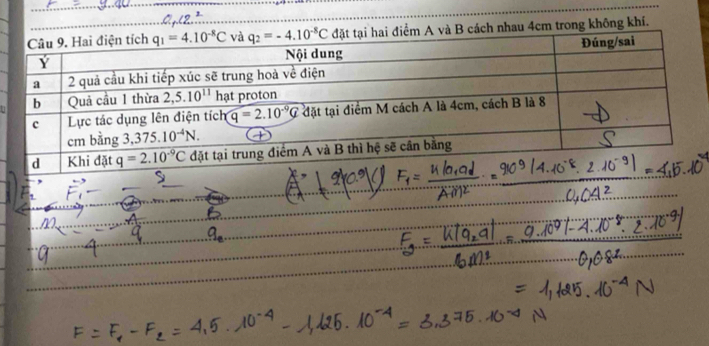 0,12²
Câu 9. Hai điện tích q₁ = 4.10⁻⁸C và q₂ = - 4.10⁻⁸C đặt tại hai điểm A và B cách nhau 4cm trong không khí.
Ý Nội dung Đúng/sai
a 2 quả cầu khi tiếp xúc sẽ trung hoà về điện
b Quả cầu 1 thừa 2,5.10¹¹ hạt proton
c Lực tác dụng lên điện tích q = 2.10⁻⁹C đặt tại điểm M cách A là 4cm, cách B là 8 Đ
cm bằng 3,375.10⁻⁴N. +
d Khi đặt q = 2.10⁻⁹C đặt tại trung điểm A và B thì hệ sẽ cân bằng S
F₂ F₁
F₁ = k|q₁q| / AM² = 9.10⁹ |4.10⁻⁸. 2.10⁻⁹| / 0,04² = 4,5.10⁻⁴
M A B
q 4
F₂ = k|q₂q| / BM² = 9.10⁹ |-4.10⁻⁸. 2.10⁻⁹| / 0,08²
= 1,125.10⁻⁴ N
F = F₁ - F₂ = 4,5.10⁻⁴ - 1,125.10⁻⁴ = 3,375.10⁻⁴ N